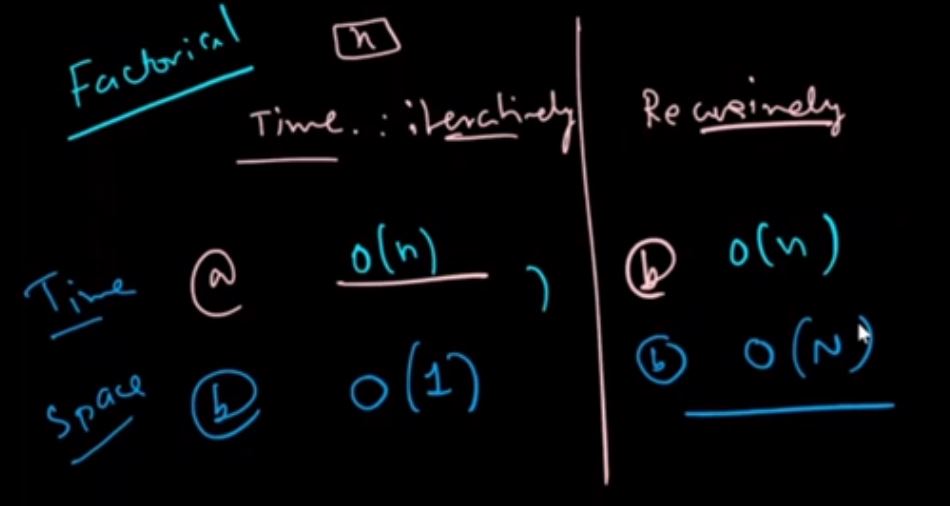 Factorial
n
Time. : iteratively
Recursively
Time a O(n) ) b O(n)
Space b O(1) b O(N)